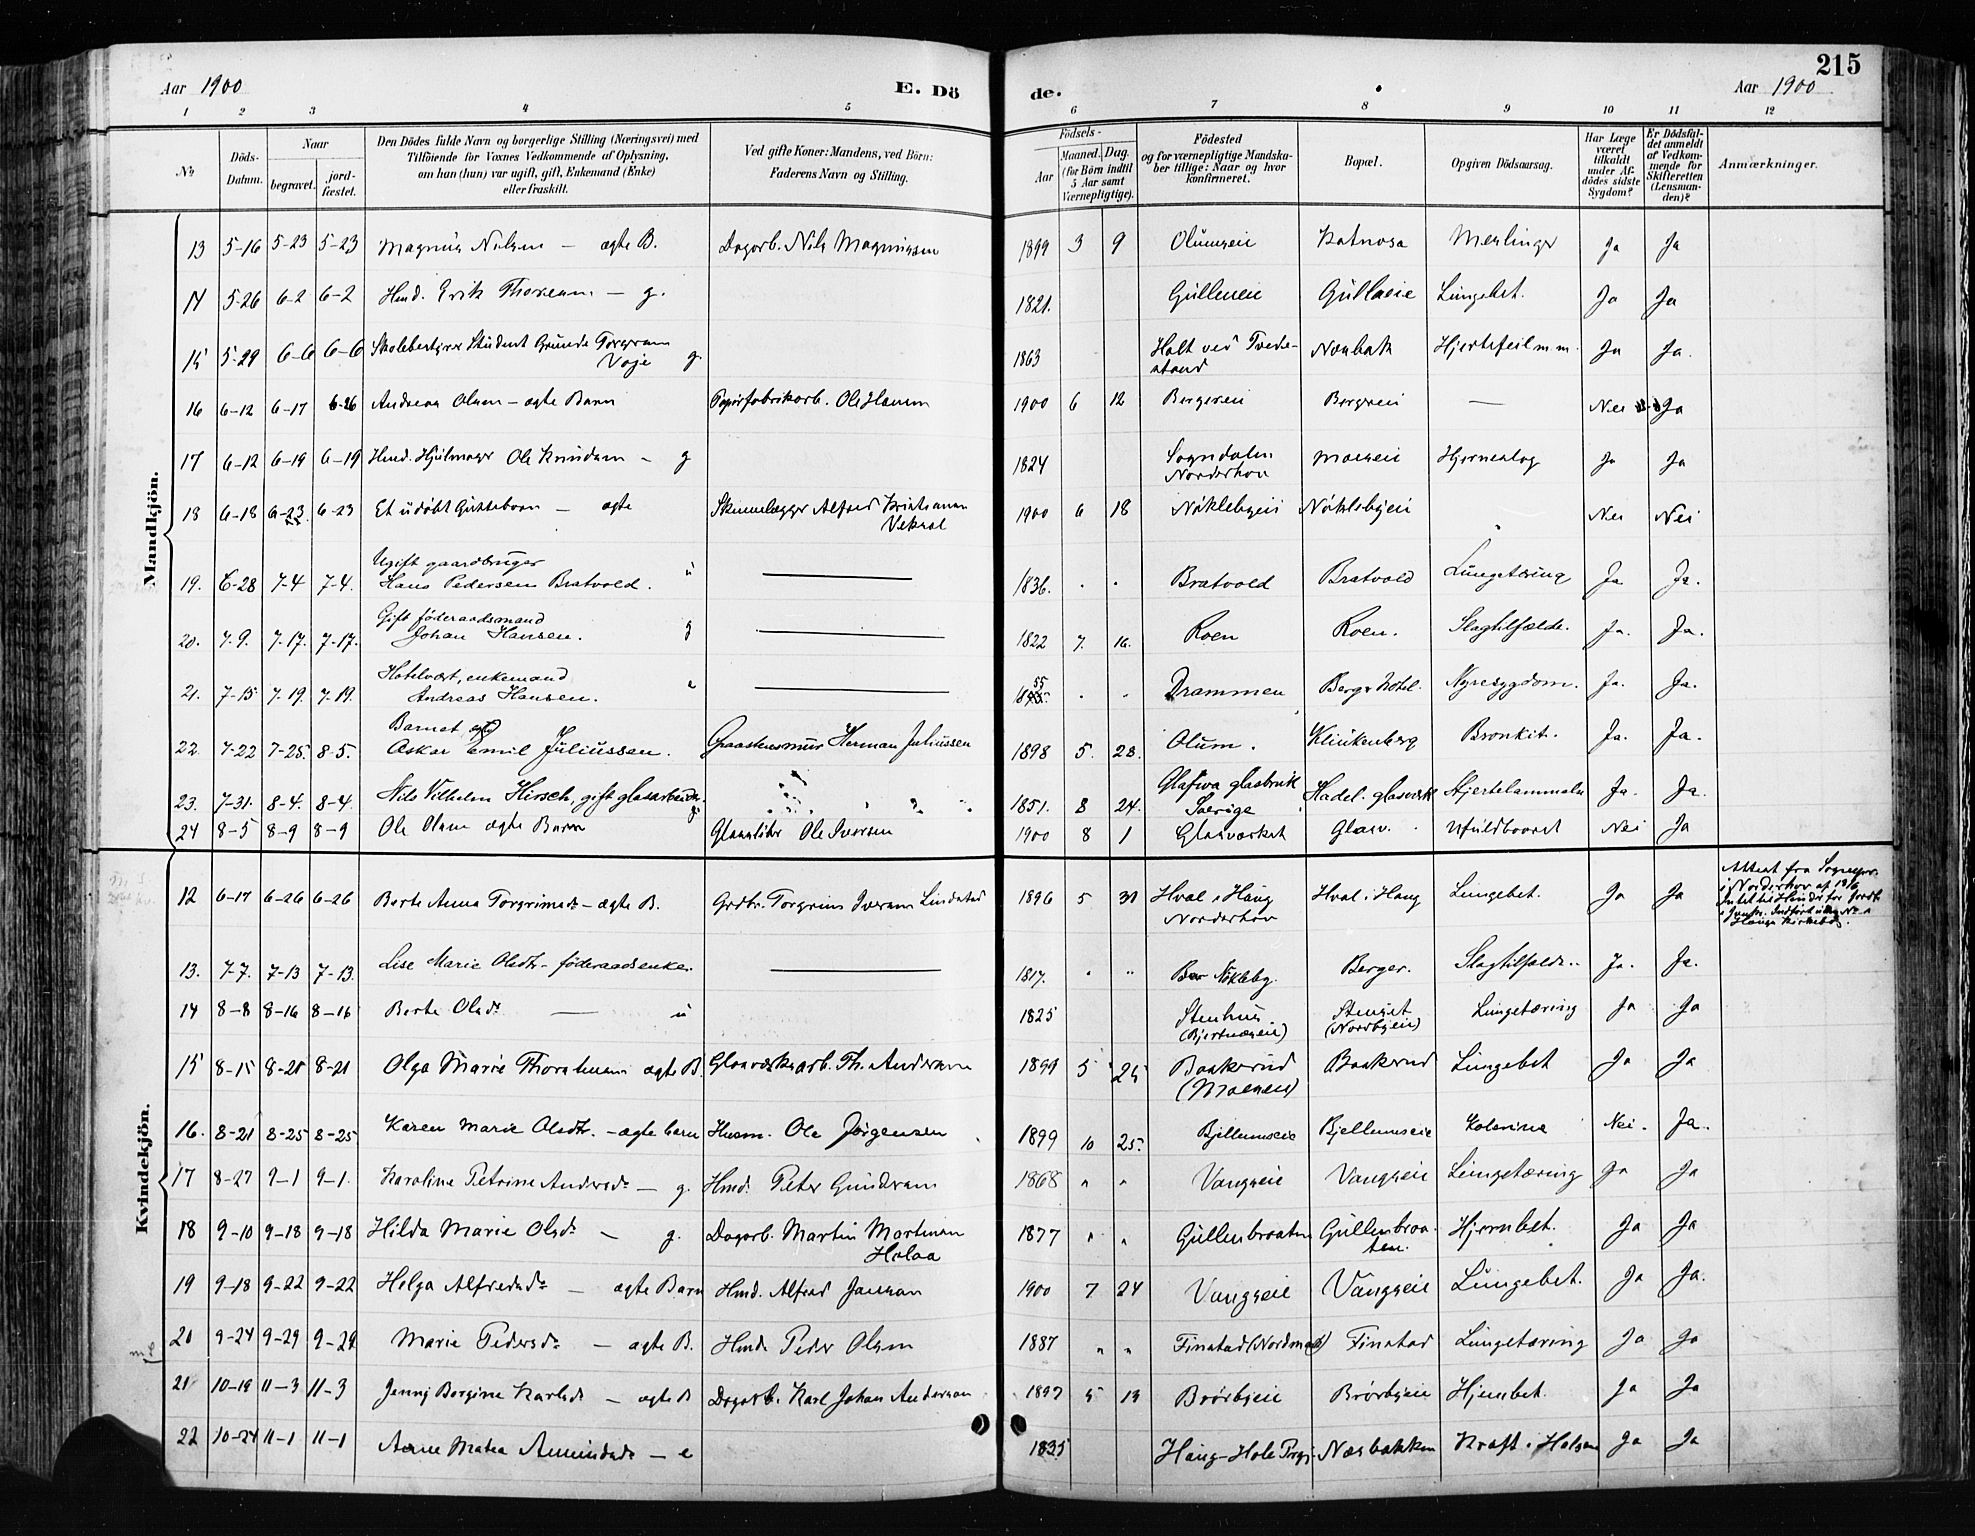 215
Aar 1900 E. Dö de. Aar 1900
1 2 3 4 5 6 7 8 9 10 11 12
No Döds-Datum. Naar begravet. jord-fæstet. Den Dödes fulde Navn og borgerlige Stilling (Næringsvei) med Tilföiende for Voxnes Vedkommende af Oplysning, om han (hun) var ugift, gift, Enkemand (Enke) eller fraskilt. Ved gifte Koner: Mandens, ved Börn: Faderens Navn og Stilling. Födsels- Aar Maaned. Dag. (for Börn indtil 5 Aar samt Værnepligtige). Födested og for værnepligtige Mandskaber tillige: Naar og hvor konfirmeret. Bopæl. Opgiven Dödsaarsag. Har Læge været tilkaldt under Afdödes sidste Sygdom? Er Dödsfaldet anmeldt af Vedkommende for Skifteretten (Lensmanden)? Anmærkninger.
Mandkjön.
13 5-16 5-23 5-23 Magnus Nilsen — ægte B. Dagarb. Nils Magnussen 1899 3 9 Olumseie Katnosa Meslinger Ja Ja
14 5-26 6-2 6-2 Hmd. Erik Thoresen — g. 1821. Gulleneie Gulleneie Lungebet. Ja Ja
15 5-29 6-6 6-6 Skolebestyrer Student Grunde Torgersen
Voje g 1863 Holt ved Tvede-
strand Norbak Hjertefeil m.m. Ja Ja.
16 6-12 6-17 6-26 Andreas Olsen — ægte Barn Papirfabrikarb. Ole Hansen 1900 6 12 Bergereie Bergreie — Nei Ja
17 6-12 6-19 6-19 Hmd. Hjulmager Ole Knudsen — g 1824 Sogndalen
Norderhov Moeseie Hjerneslag Ja Ja
18 6-18 6-23 6-23 Et udöbt Guttebarn — ægte Skinnelægger Alfred Kristiansen
1900 6 18 Nöklebyeie Nöklebyeie Nei Nei
19. 6-28 7-4 7-4. Ugift gaardbruger
Hans Pedersen Bratvold. u — 1836. Bratvold Bratvold Lungetæring Ja. Ja.
20. 7-9. 7-17. 7-17. Gift föderaadsmand
Johan Hansen. g — 1822 7. 16. Roen Roen. Slagtilfælde. Ja. Ja.
21. 7-15 7-19. 7-19. Hotelvært, enkemand
Andreas Hansen. e — Drammen Bergs hotel. Nyresygdom. Ja. Ja.
22. 7-22 7-25. 8-5. Barnet
Oskar Emil Juliussen. Graastensmur Herman Juliussen 1898 5. 28. Olum. Klinkenberg Bronkit. Ja. Ja.
23. 7-31. 8-4. 8-4. Nils Vilhelm Hirsch, gift glasarbeider. g 1851. 8 24. Glafva glasbruk
Sverige Hadel. glasværk Hjertelammelse Ja. Ja.
24 8-5 8-9 8-9 Ole Olsen ægte Barn Glassliber Ole Iversen 1900 8 1 Glasværket Glasv. Ufuldbaaret Nei Ja
Kvindekjön.
12 6-17 6-26 6-26 Berte Anna Torgrimsdr — ægte B. Grdbr. Torgrim Iversen Lindstad 1896 5 30 Hval i Haug
Norderhov Hval i Haug Lungebet. Ja Ja Attest fra Sogneprr.
i Norderhov af 18/6
Intet til Hinder for Jordf.
13. 7-7. 7-13 7-13. Lise Marie Olsdtr — föderaadsenke. — 1817. Nökleby. Berger. Slagtilfælde. Ja. Ja.
14 8-8 8-16 8-16 Berte Olsdr — u 1825 Stenhus
(Bjertneseie) Stenset
(Nordbyeie) Lungetæring Ja Ja
15 8-15 8-21 8-21 Olga Marie Thorstensen ægte B. Glasværksarb. Th. Andersen 1899 5 25 Baakerud
(Moeseie) Baakerud Lungebet Ja Ja
16. 8-21 8-25 8-25 Karen Marie Olsdtr. — ægte barn Husm. Ole Jörgensen 1899 10 25. Bjellumseie Bjellumseie Kolerine Nei. Ja.
17 8-27 9-1 9-1. Karoline Petrine Andersdr — g. Hmd. Peter Gundersen 1868 " " Vangseie Vangseie Lungetæring Ja Ja
18 9-10 9-18 9-18 Hilda Marie Olsdr — g. Dagarb. Martin Martinsen
Holaa 1877 " " Gullenbraaten Gullenbraa-
ten. Hjernbet. Ja Ja
19 9-18 9-22 9-22 Helga Alfredsdr — ægte Barn Hmd. Alfred Jansen 1900 7 24 Vangseie Vangseie Lungebet. Ja Ja.
20 9-24 9-29 9-29 Marie Pedersdr — ægte B. Hmd. Peder Olsen 1887 " " Finstad (Nordmark) Finstad Lungetæring Ja Ja
21 10-19 11-3 11-3 Jenny Bergine Karlsdr — ægte B Dagarb. Karl Johan Andersen 1897 5 13 Brörbyeie Brörbyeie Hjernbet. Ja Ja
22 10-24 11-1 11-1 Anne Matea Amundsdr — e 1835 Haug — Hole Prgj. Næsbakken Kræft i Halsen Ja Ja